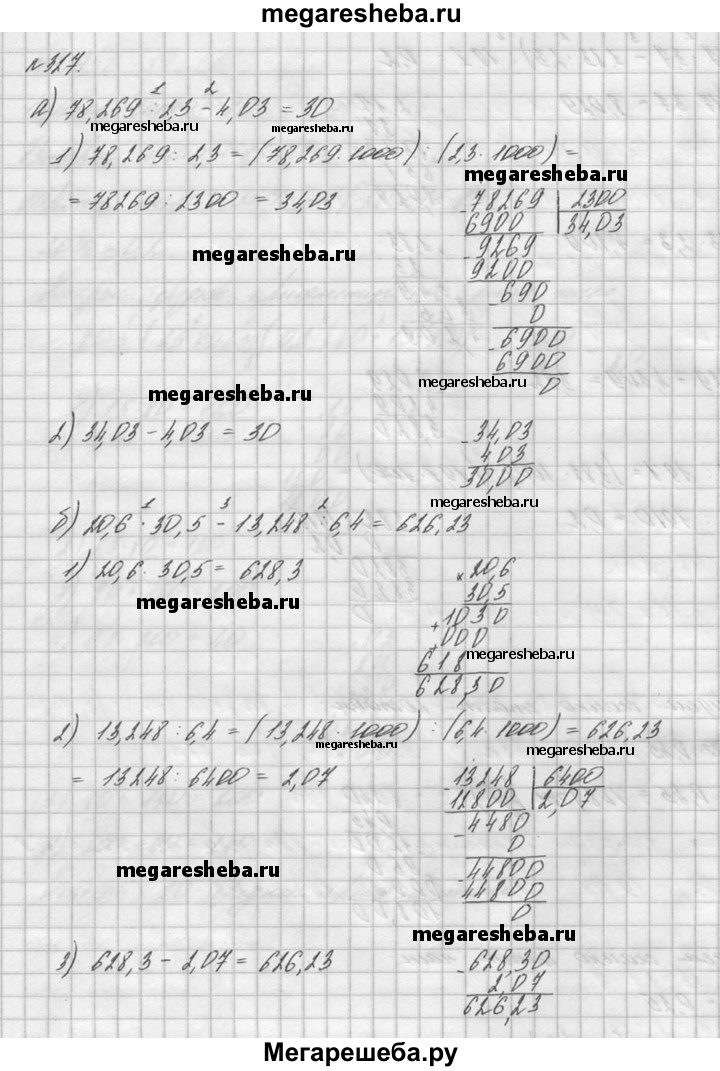 megaresheba.ru
№327.
1 2
а) 78,269 : 2,3 - 4,03 = 30
megaresheba.ru megaresheba.ru
1) 78,269 : 2,3 = (78,269 · 1000) : (2,3 · 1000) =
megaresheba.ru
= 78269 : 2300 = 34,03
megaresheba.ru
- 78269 | 2300
6900 34,03
- 9269
9200
- 690
0
- 6900
6900
0
megaresheba.ru megaresheba.ru
2) 34,03 - 4,03 = 30
- 34,03
4 03
30,00
megaresheba.ru
1 3 2
б) 20,6 · 30,5 - 13,248 : 6,4 = 626,23
1) 20,6 · 30,5 = 628,3
megaresheba.ru
× 20,6
30,5
+ 1030
+ 000
618
628,30
megaresheba.ru
2) 13,248 : 6,4 = (13,248 · 1000) : (6,4 · 1000) = 626,23
megaresheba.ru megaresheba.ru
= 13248 : 6400 = 2,07
- 13248 | 6400
12800 2,07
- 4480
0
- 44800
44800
0
megaresheba.ru
megaresheba.ru
3) 628,3 - 2,07 = 626,23
- 628,30
2,07
626,23
Мегарешеба.ру